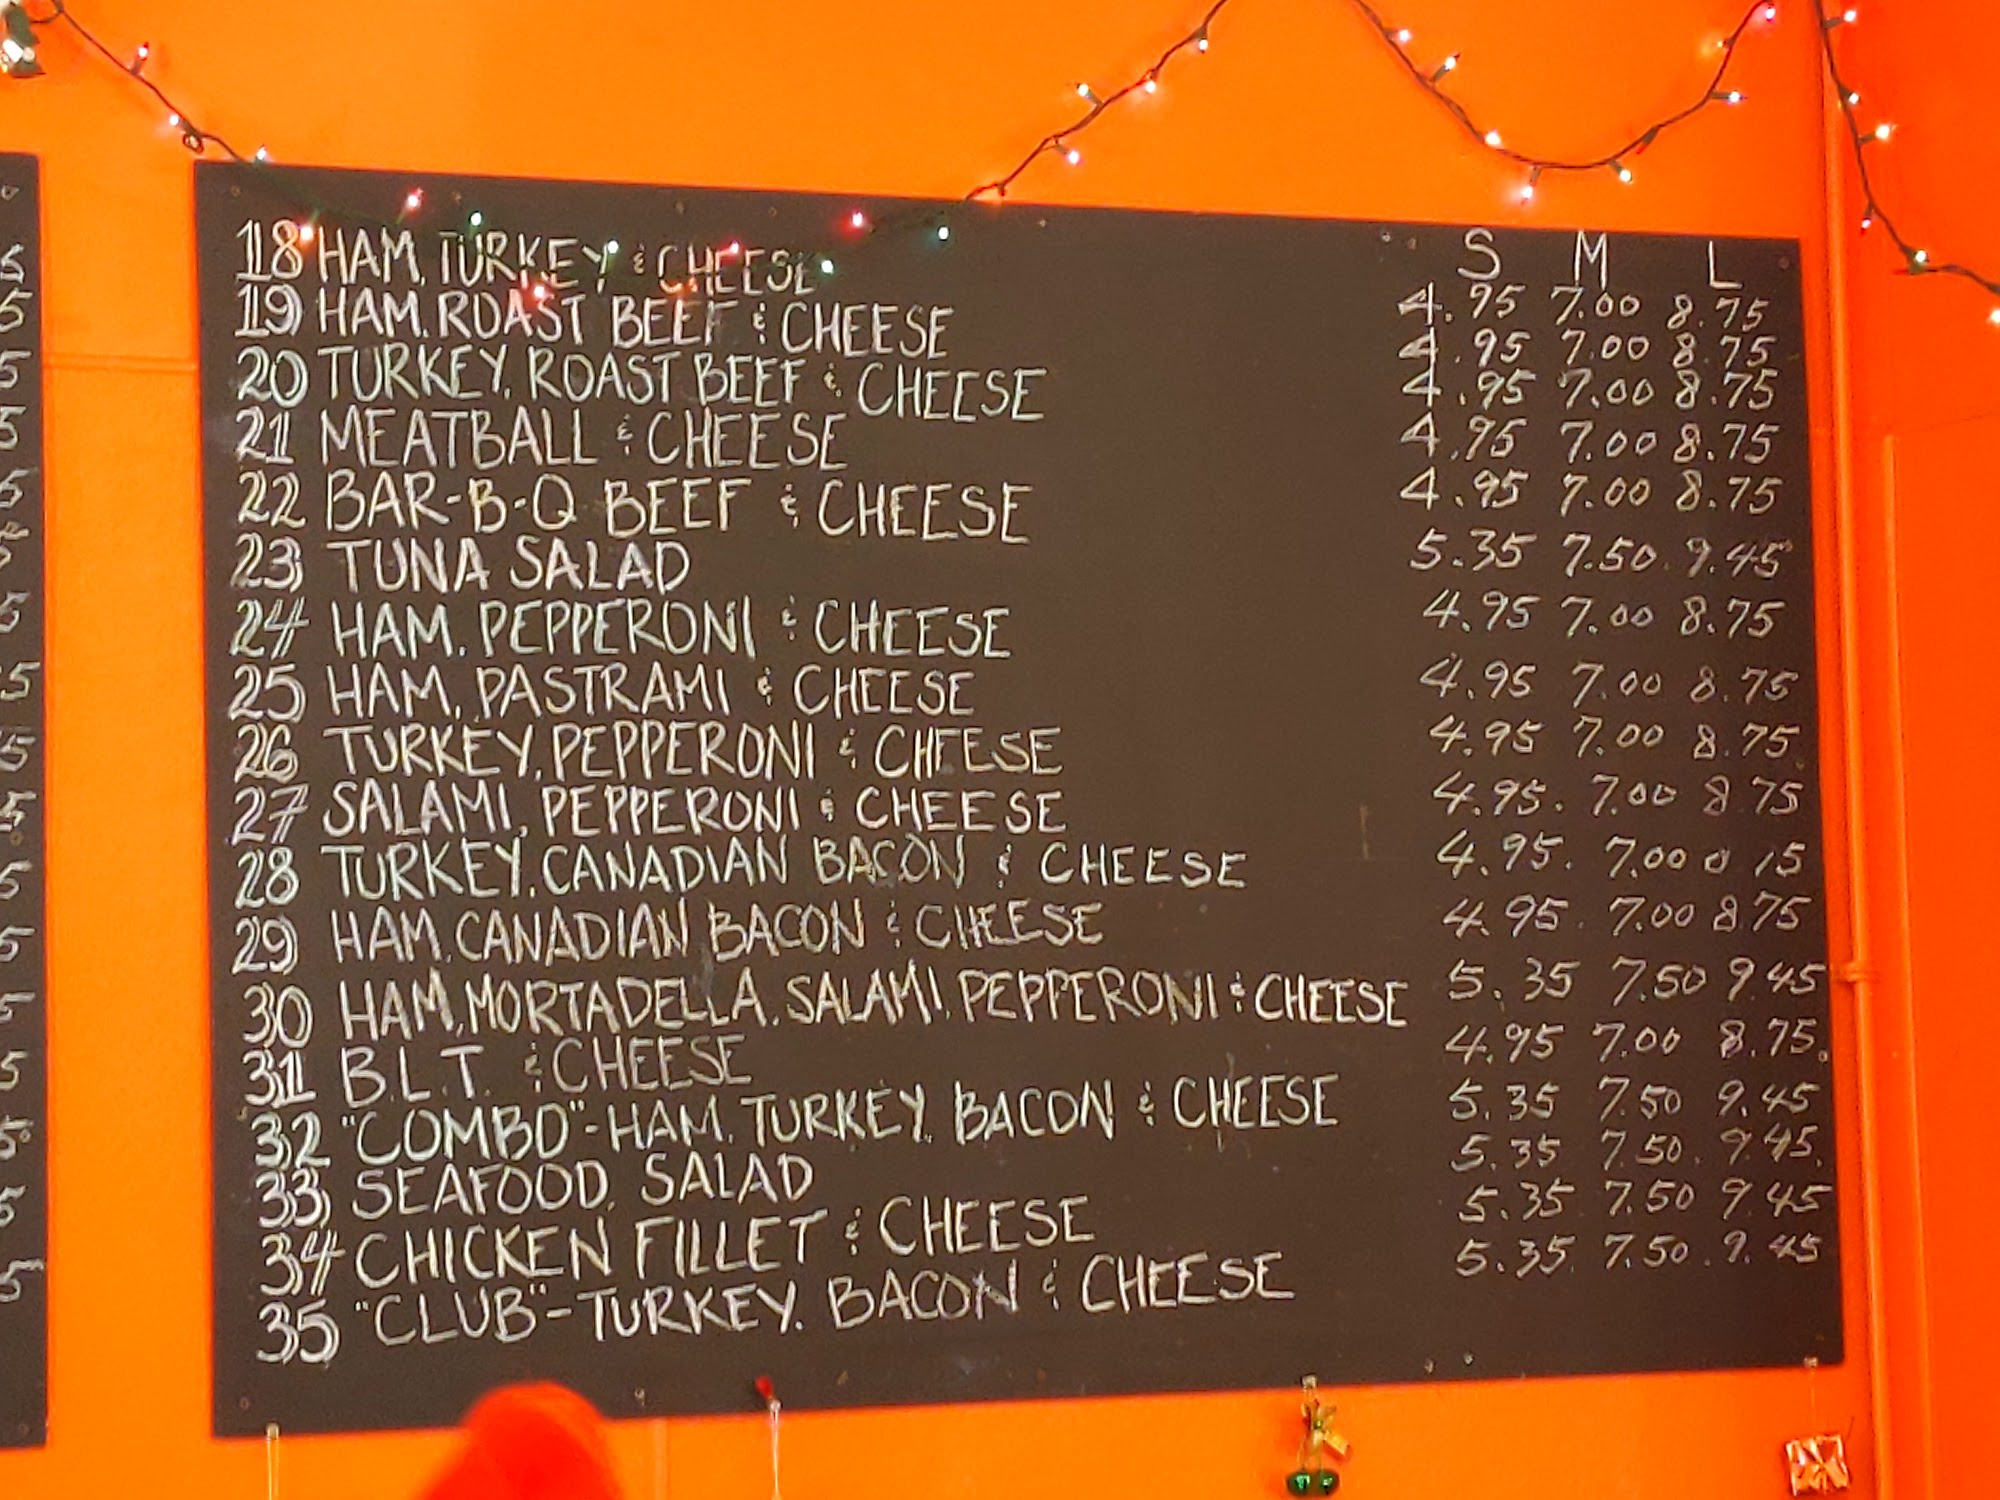 S M L
18 HAM, TURKEY & CHEESE 4.95 7.00 8.75
19 HAM, ROAST BEEF & CHEESE 4.95 7.00 8.75
20 TURKEY, ROAST BEEF & CHEESE 4.95 7.00 8.75
21 MEATBALL & CHEESE 4.95 7.00 8.75
22 BAR-B-Q BEEF & CHEESE 4.95 7.00 8.75
23 TUNA SALAD 5.35 7.50 9.45
24 HAM, PEPPERONI & CHEESE 4.95 7.00 8.75
25 HAM, PASTRAMI & CHEESE 4.95 7.00 8.75
26 TURKEY, PEPPERONI & CHEESE 4.95 7.00 8.75
27 SALAMI, PEPPERONI & CHEESE 4.95 7.00 8.75
28 TURKEY, CANADIAN BACON & CHEESE 4.95 7.00
29 HAM, CANADIAN BACON & CHEESE 4.95 7.00 8.75
30 HAM, MORTADELLA, SALAMI, PEPPERONI & CHEESE 5.35 7.50 9.45
31 B.L.T. & CHEESE 4.95 7.00 8.75
32 "COMBO"-HAM, TURKEY, BACON & CHEESE 5.35 7.50 9.45
33 SEAFOOD, SALAD 5.35 7.50 9.45
34 CHICKEN FILLET & CHEESE 5.35 7.50 9.45
35 "CLUB"-TURKEY, BACON & CHEESE 5.35 7.50 9.45